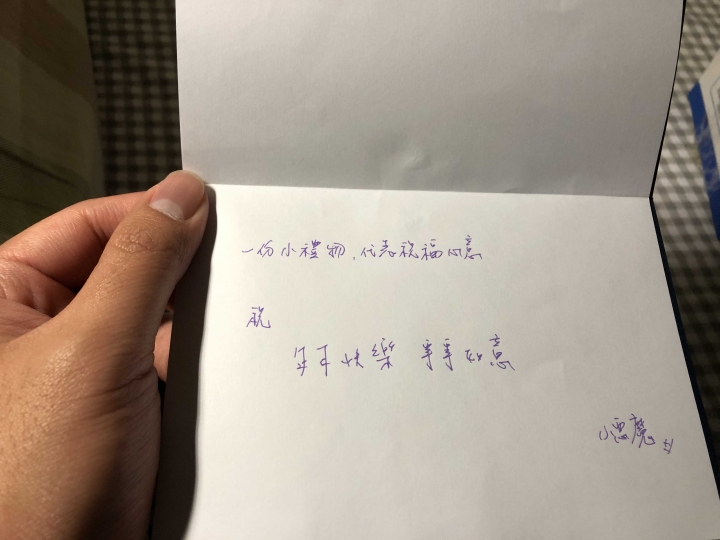 一份小禮物,代表祝福心意
祝
年年快樂 事事如意
小惡魔